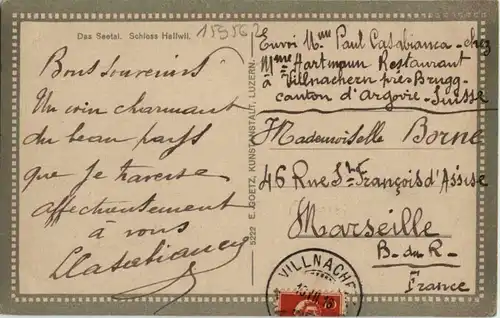 Das Seetal. Schloss Hallwil.
15556,2
Bons souvenirs
Un coin charmant
du beau pays
que je traverse
affectueusement
à vous
LCasabianca
5222 E. GOETZ, KUNSTANSTALT, LUZERN.
Envoi Mme Paul Casabianca - chez
Mme Hartmann Restaurant
à Villnachern près Brugg -
canton d'Argovie - Suisse
Mademoiselle Borne
46 Rue St François d'Assise
Marseille
B. du R -
France
VILLNACHE